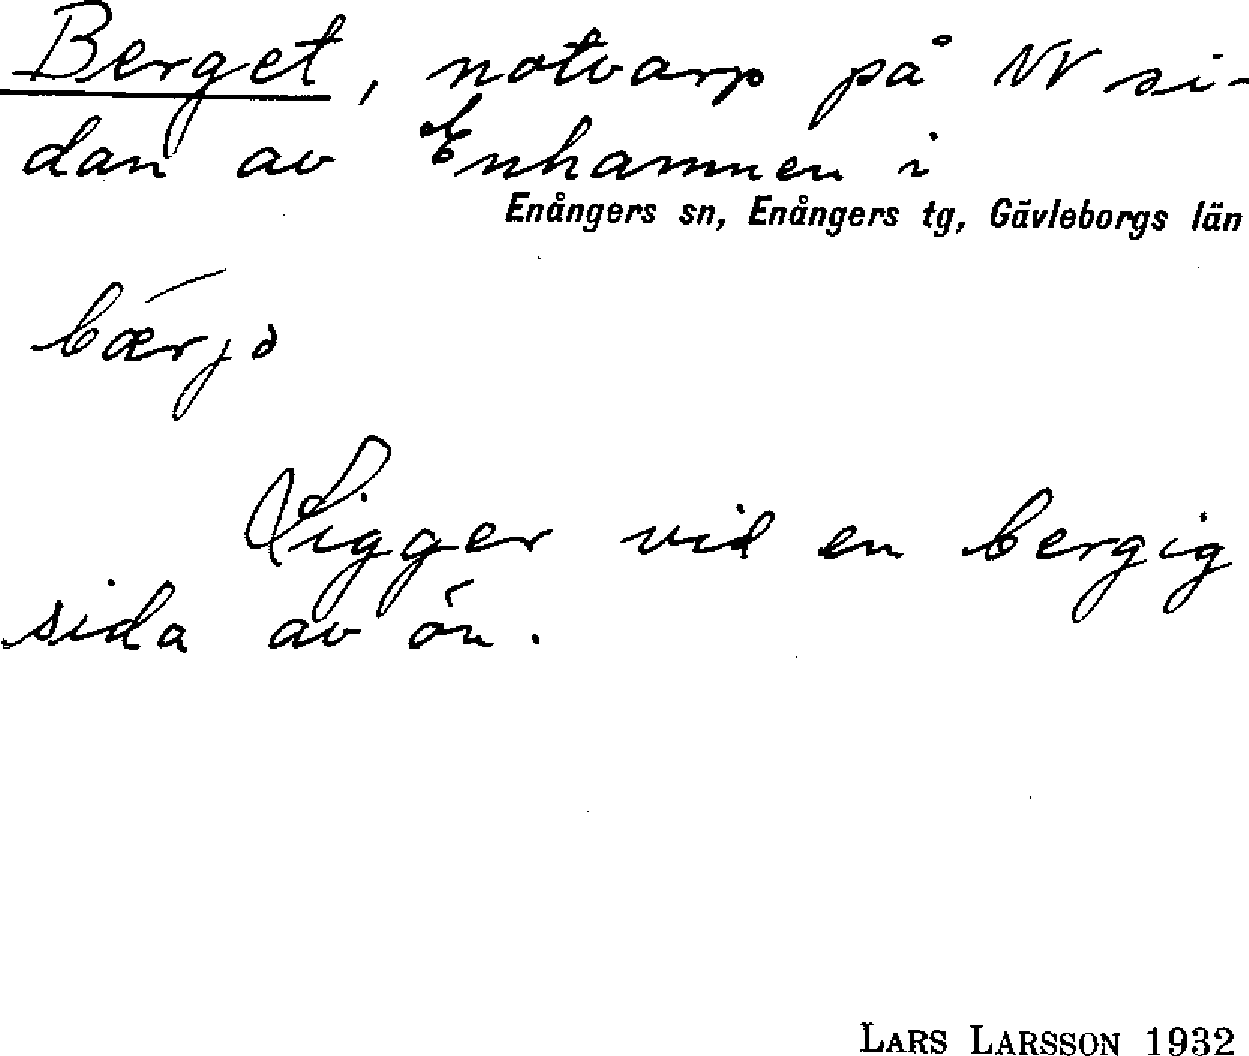 Berget, notvarp på NV si-
dan av Enhamnen i
Enångers sn, Enångers tg, Gävleborgs län
bærjə
Ligger vid en bergig
sida av ön.
LARS LARSSON 1932